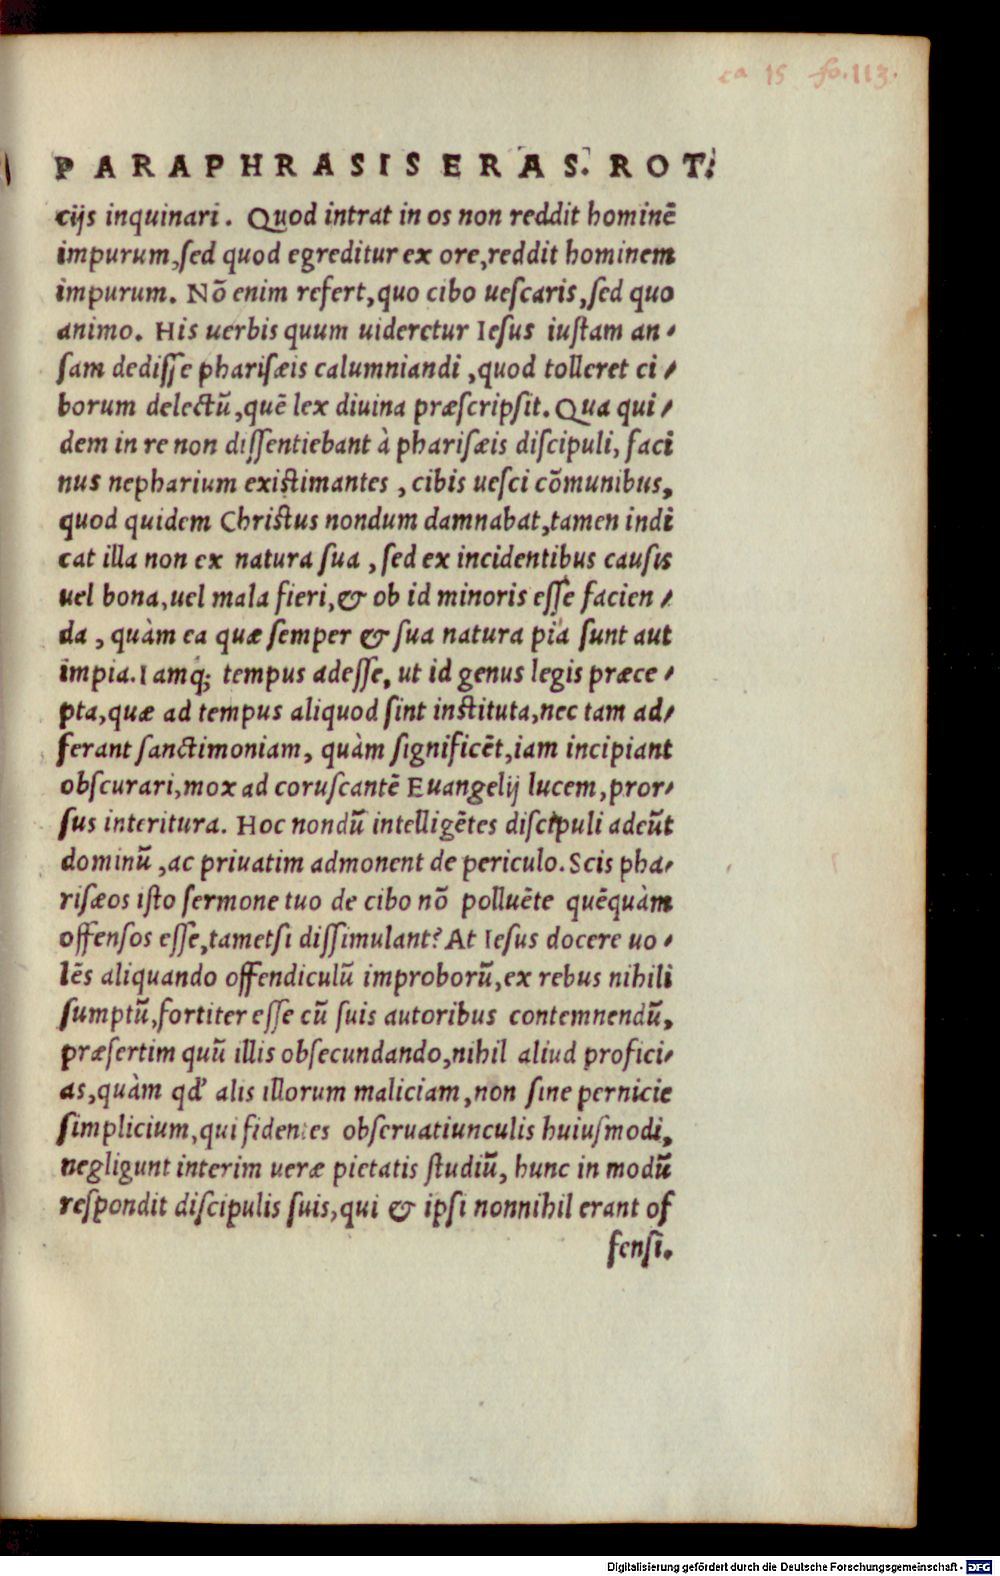 ca 15 fo. 113.
PARAPHRASIS ERAS. ROT.
cijs inquinari. Quod intrat in os non reddit hominē
impurum, ſed quod egreditur ex ore, reddit hominem
impurum. Nō enim refert, quo cibo ueſcaris, ſed quo
animo. His uerbis quum uideretur Ieſus iuſtam an⸗
ſam dediſſe phariſæis calumniandi, quod tolleret ci⸗
borum delectū, quē lex diuina præſcripſit. Qua qui⸗
dem in re non diſſentiebant à phariſæis diſcipuli, faci
nus nepharium exiſtimantes, cibis ueſci cōmunibus,
quod quidem Chriſtus nondum damnabat, tamen indi
cat illa non ex natura ſua, ſed ex incidentibus cauſis
uel bona, uel mala fieri, & ob id minoris eſſe facien⸗
da, quàm ea quæ ſemper & ſua natura pia ſunt aut
impia. Iamq; tempus adeſſe, ut id genus legis præce⸗
pta, quæ ad tempus aliquod ſint inſtituta, nec tam ad⸗
ferant ſanctimoniam, quàm ſignificēt, iam incipiant
obſcurari, mox ad coruſcantē Euangelij lucem, pror⸗
ſus interitura. Hoc nondū intelligētes diſcipuli adeūt
dominū, ac priuatim admonent de periculo. Scis pha⸗
riſæos iſto ſermone tuo de cibo nō polluēte quēquàm
offenſos eſſe, tametſi diſſimulant? At Ieſus docere uo⸗
lēs aliquando offendiculū improborū, ex rebus nihili
ſumptū, fortiter eſſe cū ſuis autoribus contemnendū,
præſertim quū illis obſecundando, nihil aliud profici⸗
as, quàm qd' alis illorum maliciam, non ſine pernicie
ſimplicium, qui fidentes obſeruatiunculis huiuſmodi,
negligunt interim ueræ pietatis ſtudiū, hunc in modū
reſpondit diſcipulis ſuis, qui & ipſi nonnihil erant of
fenſi.
Digitalisierung gefördert durch die Deutsche Forschungsgemeinschaft - DFG